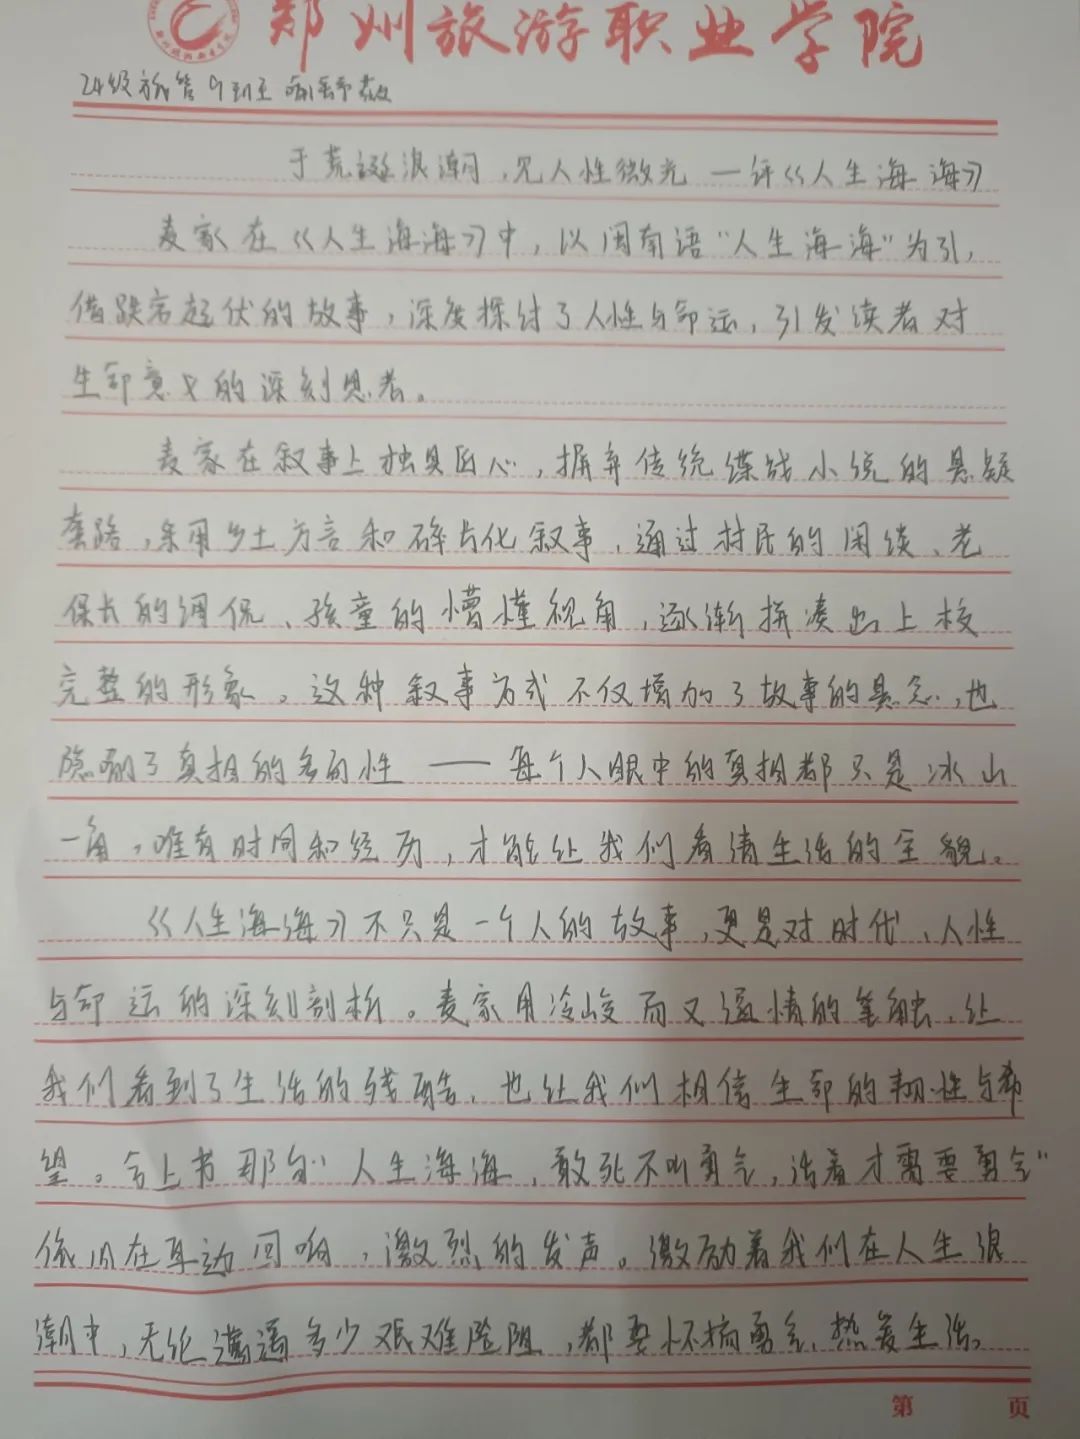 郑州旅游职业学院
24级旅管9班
于荒诞浪潮,见人性微光 —评《人生海海》
麦家在《人生海海》中,以闽南语“人生海海”为引,
借跌宕起伏的故事,深度探讨了人性与命运,引发读者对
生命意义的深刻思考。
麦家在叙事上独具匠心,摒弃传统谍战小说的悬疑
套路,采用乡土方言和碎片化叙事,通过村民的闲谈、老
保长的调侃、孩童的懵懂视角,逐渐拼凑出上校
完整的形象。这种叙事方式不仅增加了故事的悬念,也
隐喻了真相的多面性 —— 每个人眼中的真相都只是冰山
一角,唯有时间和经历,才能让我们看清生活的全貌。
《人生海海》不只是一个人的故事,更是对时代、人性
与命运的深刻剖析。麦家用冷峻而又温情的笔触,让
我们看到了生活的残酷,也让我们相信生命的韧性与希
望。合上书那句“人生海海,敢死不叫勇气,活着才需要勇气”
依旧在耳边回响,激烈的发声。激励着我们在人生浪
潮中,无论遭遇多少艰难险阻,都要怀揣勇气,热爱生活。
第 页